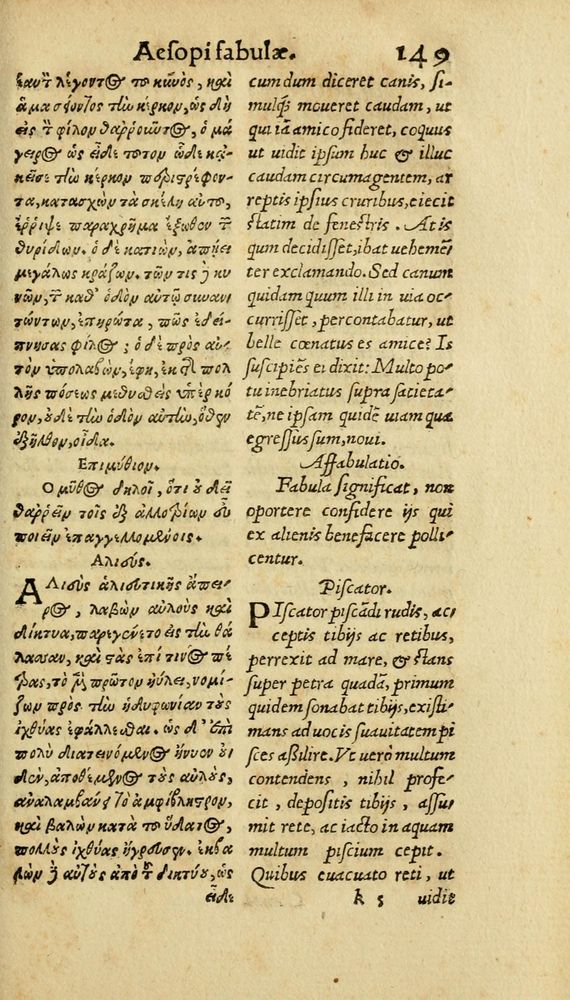 Aesopi fabulæ. 149
ἑαυτῷ λέγοντος τοῦ κυνὸς, καὶ
ἅμα σείοντος τὴν κέρκον, ὡς δὴ
εἰς τ̀ φίλον θαῤῥοῦντος, ὁ μά
γειρος ὡς εἶδε τοῦτον ὧδε κἀ-
κεῖσε τὴν κέρκον περιστρέφον-
τα, κατασχὼν τὰ σκέλη αὐτοῦ,
ἔῤῥιψε παραχρῆμα ἔξωθεν τ̃
θυρίδων. ὁ δὲ κατιὼν, ἀπῄει
μεγάλως κράζων. τῶν τις δὲ κυ
νῶν, τ̃ καθ’ ὁδὸν αὐτῷ συναν
τώντων, ἐπηρώτα, πῶς ἐδεί-
πνησας φίλος; ὁ δὲ πρὸς αὐ-
τὸν ὑπολαβὼν, ἔφη, ἐκ τ̃ πολ
λῆς πόσεως μεθυσθεὶς ὑπὲρ κό
ρον, οὐδὲ τὴν ὁδὸν αὐτὴν, ὅθεν
ἐξῆλθον, οἶδα.
Επιμύθιον.
Ο μῦθος δηλοῖ, ὅτι οὐ δεῖ
θαῤῥεῖν τοῖς ἐξ ἀλλοτρίων εὖ
ποιεῖν ἐπαγγελλομένοις.
Αλιεύς.
ΑΛιεὺς ἁλιευτικῆς ἄπει-
ρος, λαβὼν αὐλοὺς καὶ
δίκτυα, παρεγένετο εἰς τὴν θά
λασσαν, καὶ στὰς ἐπί τινος πέ
τρας, τὸ μὲν πρῶτον ηὔλει, νομί-
ζων πρὸς τὴν ἡδυφωνίαν τοὺς
ἰχθύας ἐφάλλεσθαι. ὡς δ’ ἐπὶ
πολὺ διατεινόμενος ἤνυεν οὐ
δὲν, ἀποθέμενος τοὺς αὐλοὺς,
ἀναλαμβάνει τὸ ἀμφίβληστρον,
καὶ βαλὼν κατὰ τοῦ ὕδατος,
πολλοὺς ἰχθύας ἤγρευσεν. ἐκβα
λὼν δὲ αὐτοὺς ἀπὸ τ̃ δικτύου, ὡς
εἶδε
cum dum diceret canis, si-
mulq́; moueret caudam, ut
qui iā amico fideret, coquus
ut uidit ipsum huc & illuc
caudam circumagentem, ar
reptis ipsius cruribus, eiecit
statim de fenestris. At is
qum decidisset, ibat uehemē
ter exclamando. Sed canum
quidam quum illi in uia oc-
currisset, percontabatur, ut
belle cœnatus es amice? Is
suscipiēs ei dixit: Multo po-
tu inebriatus supra satieta-
tē, ne ipsam quidē uiam qua
egressus sum, noui.
Affabulatio.
Fabula significat, non
oportere confidere ijs qui
ex alienis benefacere polli
centur.
Piscator.
PIscator piscādi rudis, ac-
ceptis tibijs ac retibus,
perrexit ad mare, & stans
super petra quadā, primum
quidem sonabat tibijs, existi-
mans ad uocis suauitatem pi
sces assilire. Vt uerò multum
contendens, nihil profe-
cit, depositis tibijs, assu
mit rete, ac iacto in aquam
multum piscium cepit.
Quibus euacuato reti, ut
k 5 uidit